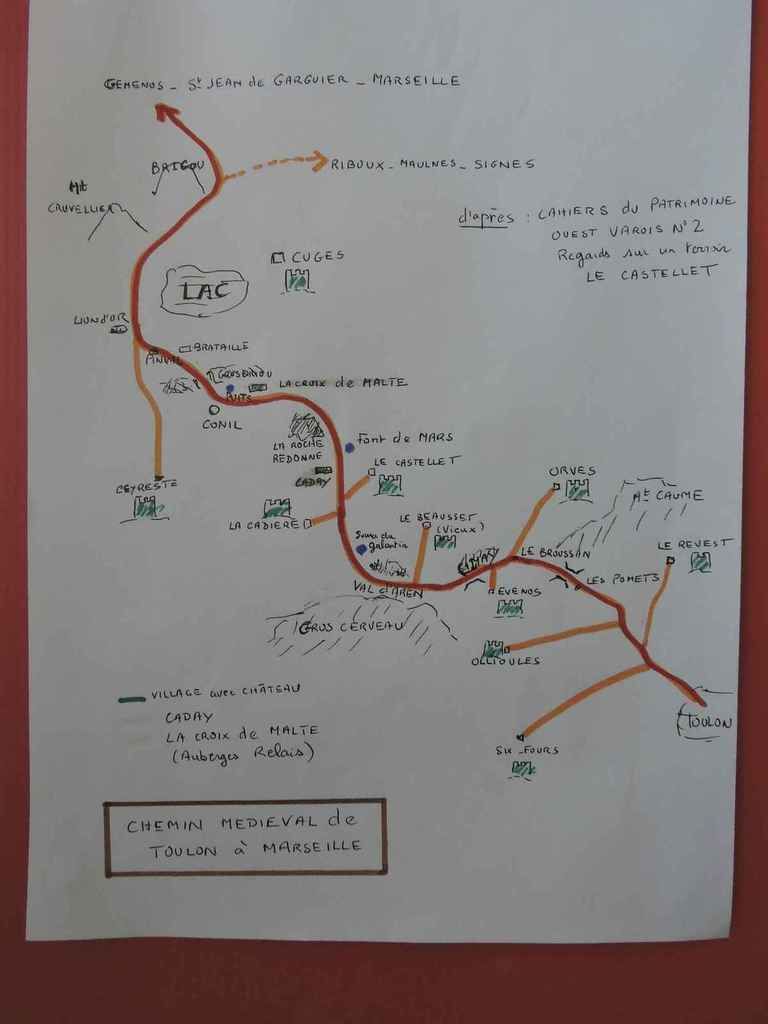 GEMENOS _ St JEAN de GARGUIER _ MARSEILLE
BAIGOU
RIBOUX _ MAULNES _ SIGNES
Mt
CRUVELLIER
d'après : CAHIERS du PATRIMOINE
OUEST VAROIS N° 2
Regards sur un terroir
LE CASTELLET
CUGES
LAC
LION d'OR
BRATAILLE
PUITS
LA CROIX de MALTE
CONIL
LA ROCHE
REDONNE
Font de MARS
CADAY
LE CASTELLET
CEYRESTE
LA CADIERE
LE BEAUSSET
(Vieux)
ORVES
Mt CAUME
LE BROUSSAN
LE REVEST
LES POMETS
VAL d'AREN
EVENOS
GROS CERVEAU
OLLIOULES
TOULON
SIX _ FOURS
VILLAGE avec CHÂTEAU
CADAY
LA CROIX de MALTE
(Auberges Relais)
CHEMIN MEDIEVAL de
TOULON à MARSEILLE